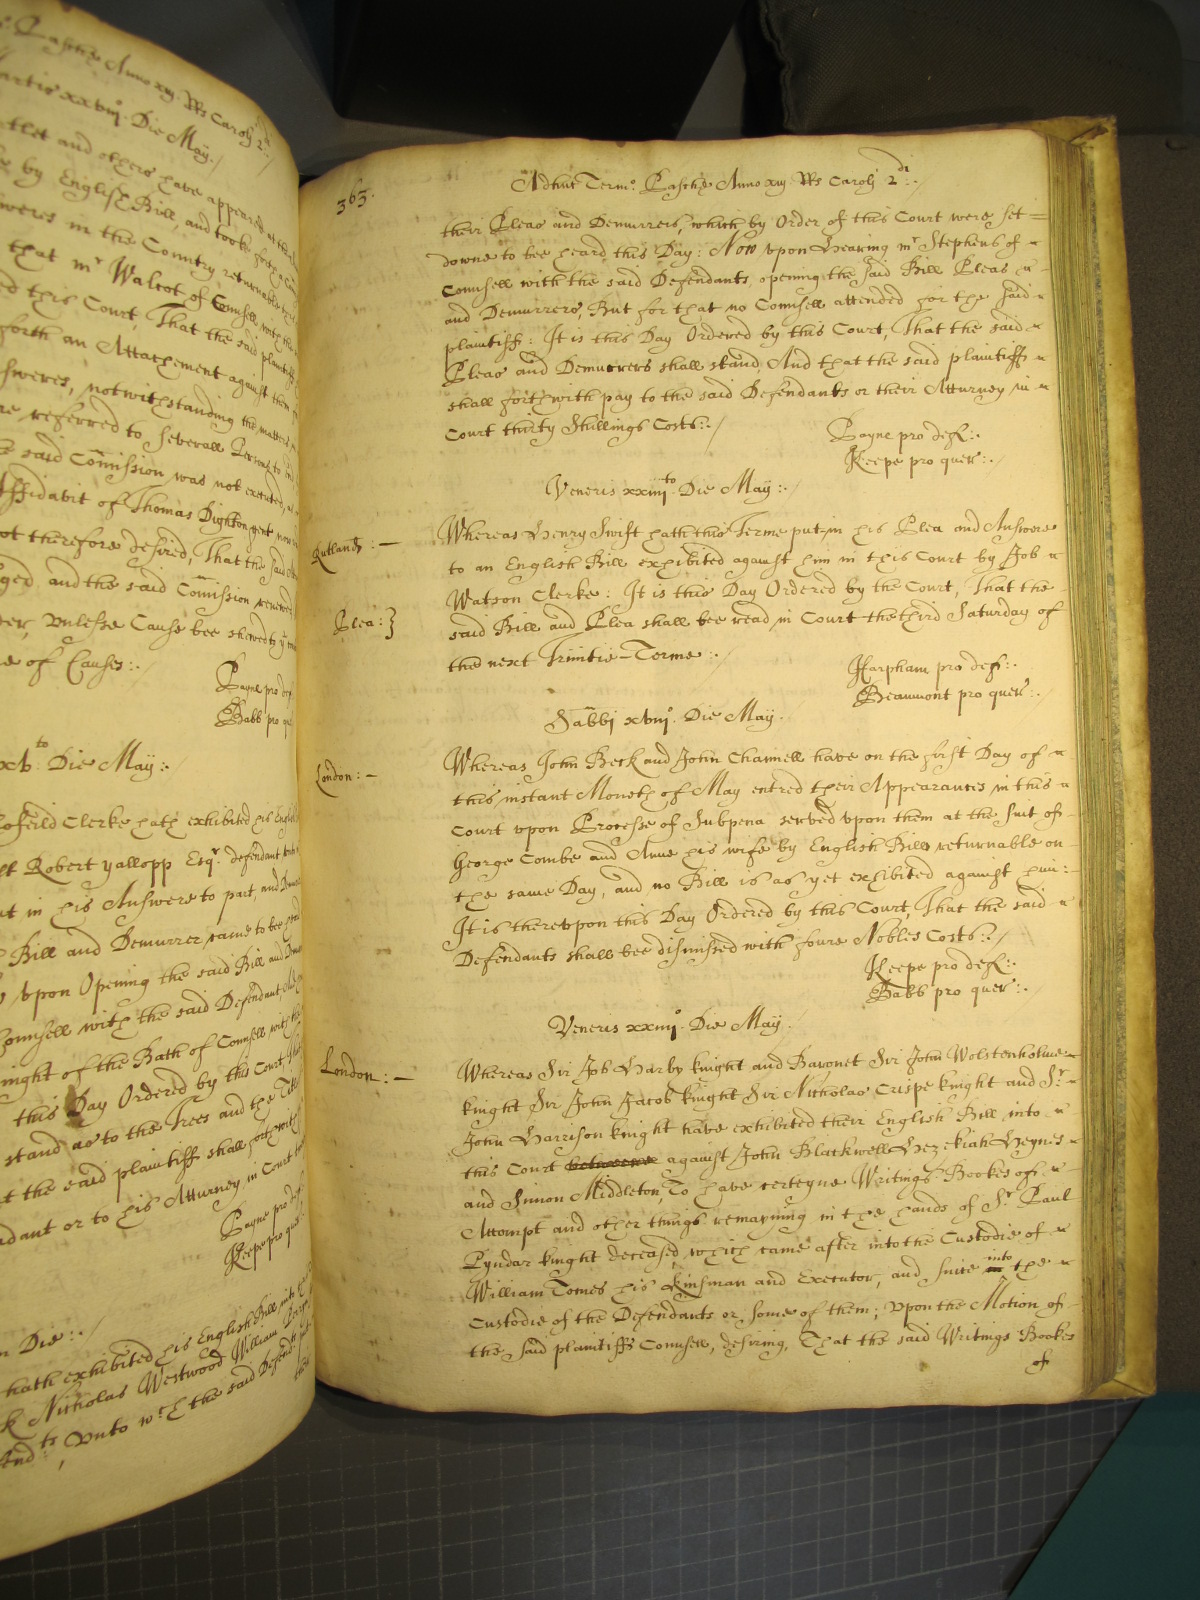 Paschæ Anno xiij. RRs Caroli 2di:./
Martis xxviijo. Die May./
and others have appeared
by English Bill, and tooke forth a
in the Country returnable
that mr Walcot of Counsell with the
this Court, That the said plaintiff
forth an Attachement against them
notwithstanding the matters
referred to severall
said Comission was not executed,
Affidavit of Thomas Dighton gent
therefore desired, That the said
and the said Comission renewed
vnlesse Cause bee shewed
of Causes:./
Payne pro def
Babb pro que
xvto Die May:./
Clerke hath exhibited his English
Robert Yallopp Esqr. defendant
in his Answere to part, and
Bill and Demurrer came to bee
vpon Opening the said Bill and
Counsell with the said Defendant,
knight of the Bath of Counsell with the
this Day Ordered by this Court,
stand as to the Trees and the
the said plaintiff shall forthwith
or to his Atturney in Court
Payne pro def
Keepe pro que
Die:./
hath exhibited his English Bill into
Nicholas Westwood William
Vnto wch the said
363.
Adhuc Termo. Paschæ Anno xiij. RRs Caroli 2di:./
their Pleas and Demurrers, which by Order of this Court were set
downe to bee heard this Day: Now vpon Hearing mr Stephens of
Counsell with the said Defendants, opening the said Bill Pleas
and Demurrers, But for that no Counsell attended for the said
plaintiff: It is this Day Ordered by this Court, That the said
Pleas and Demurrers shall stand, And that the said plaintiff
shall forthwith pay to the said Defendants or their Atturney in
Court thirty Shillings Costs:./
Payne pro def:.
Keepe pro quer:./
Veneris xxiiijto. Die May:./
Rutland: Whereas Henry Swift hath this Terme put in his Plea and Answere
to an English Bill exhibited against him in this Court by Job
Watson Clerke: It is this Day Ordered by the Court, That the
Plea:} said Bill and Plea shall bee read in Court the third Saturday of
the next Trinitie-Terme:./
Harpham pro def:.
Beaumont pro quer:./
Sabbi xviijo. Die May.
London:- Whereas John Beck and John Channell have on the first Day of
this instant Moneth of May entred their Appearances in this
Court vpon Processe of Subpena served vpon them at the suit of
George Combe and Anne his wife by English Bill returnable on
the same Day, and no Bill is as yet exhibited against
It is therevpon this Day Ordered by this Court, That the said
Defendants shall bee dismissed with foure Nobles Costs:./
Keepe pro def:.
Babb pro quer:./
Veneris xxiiijo. Die May.
London:- Whereas Sir Job Harby knight and Baronet Sir John Wolstenholme
knight Sir John Jacob knight Sir Nicholas Crispe knight and Sr
John Harrison knight have exhibited their English Bill into
this Court betweene against John Blackwell Hezekiah Heynes
and Simon Middleton, To have certeyne Writings Bookes of
Accompt and other things remayning in the hands of Sr Paul
Pyndar knight deceased, which came after into the Custodie of
William Tomes his kinsman and Executor, and since in into the
Custodie of the Defendants or some of them; Vpon the Motion of
the said plaintiffs Counsell, desiring, That the said Writings Bookes
of